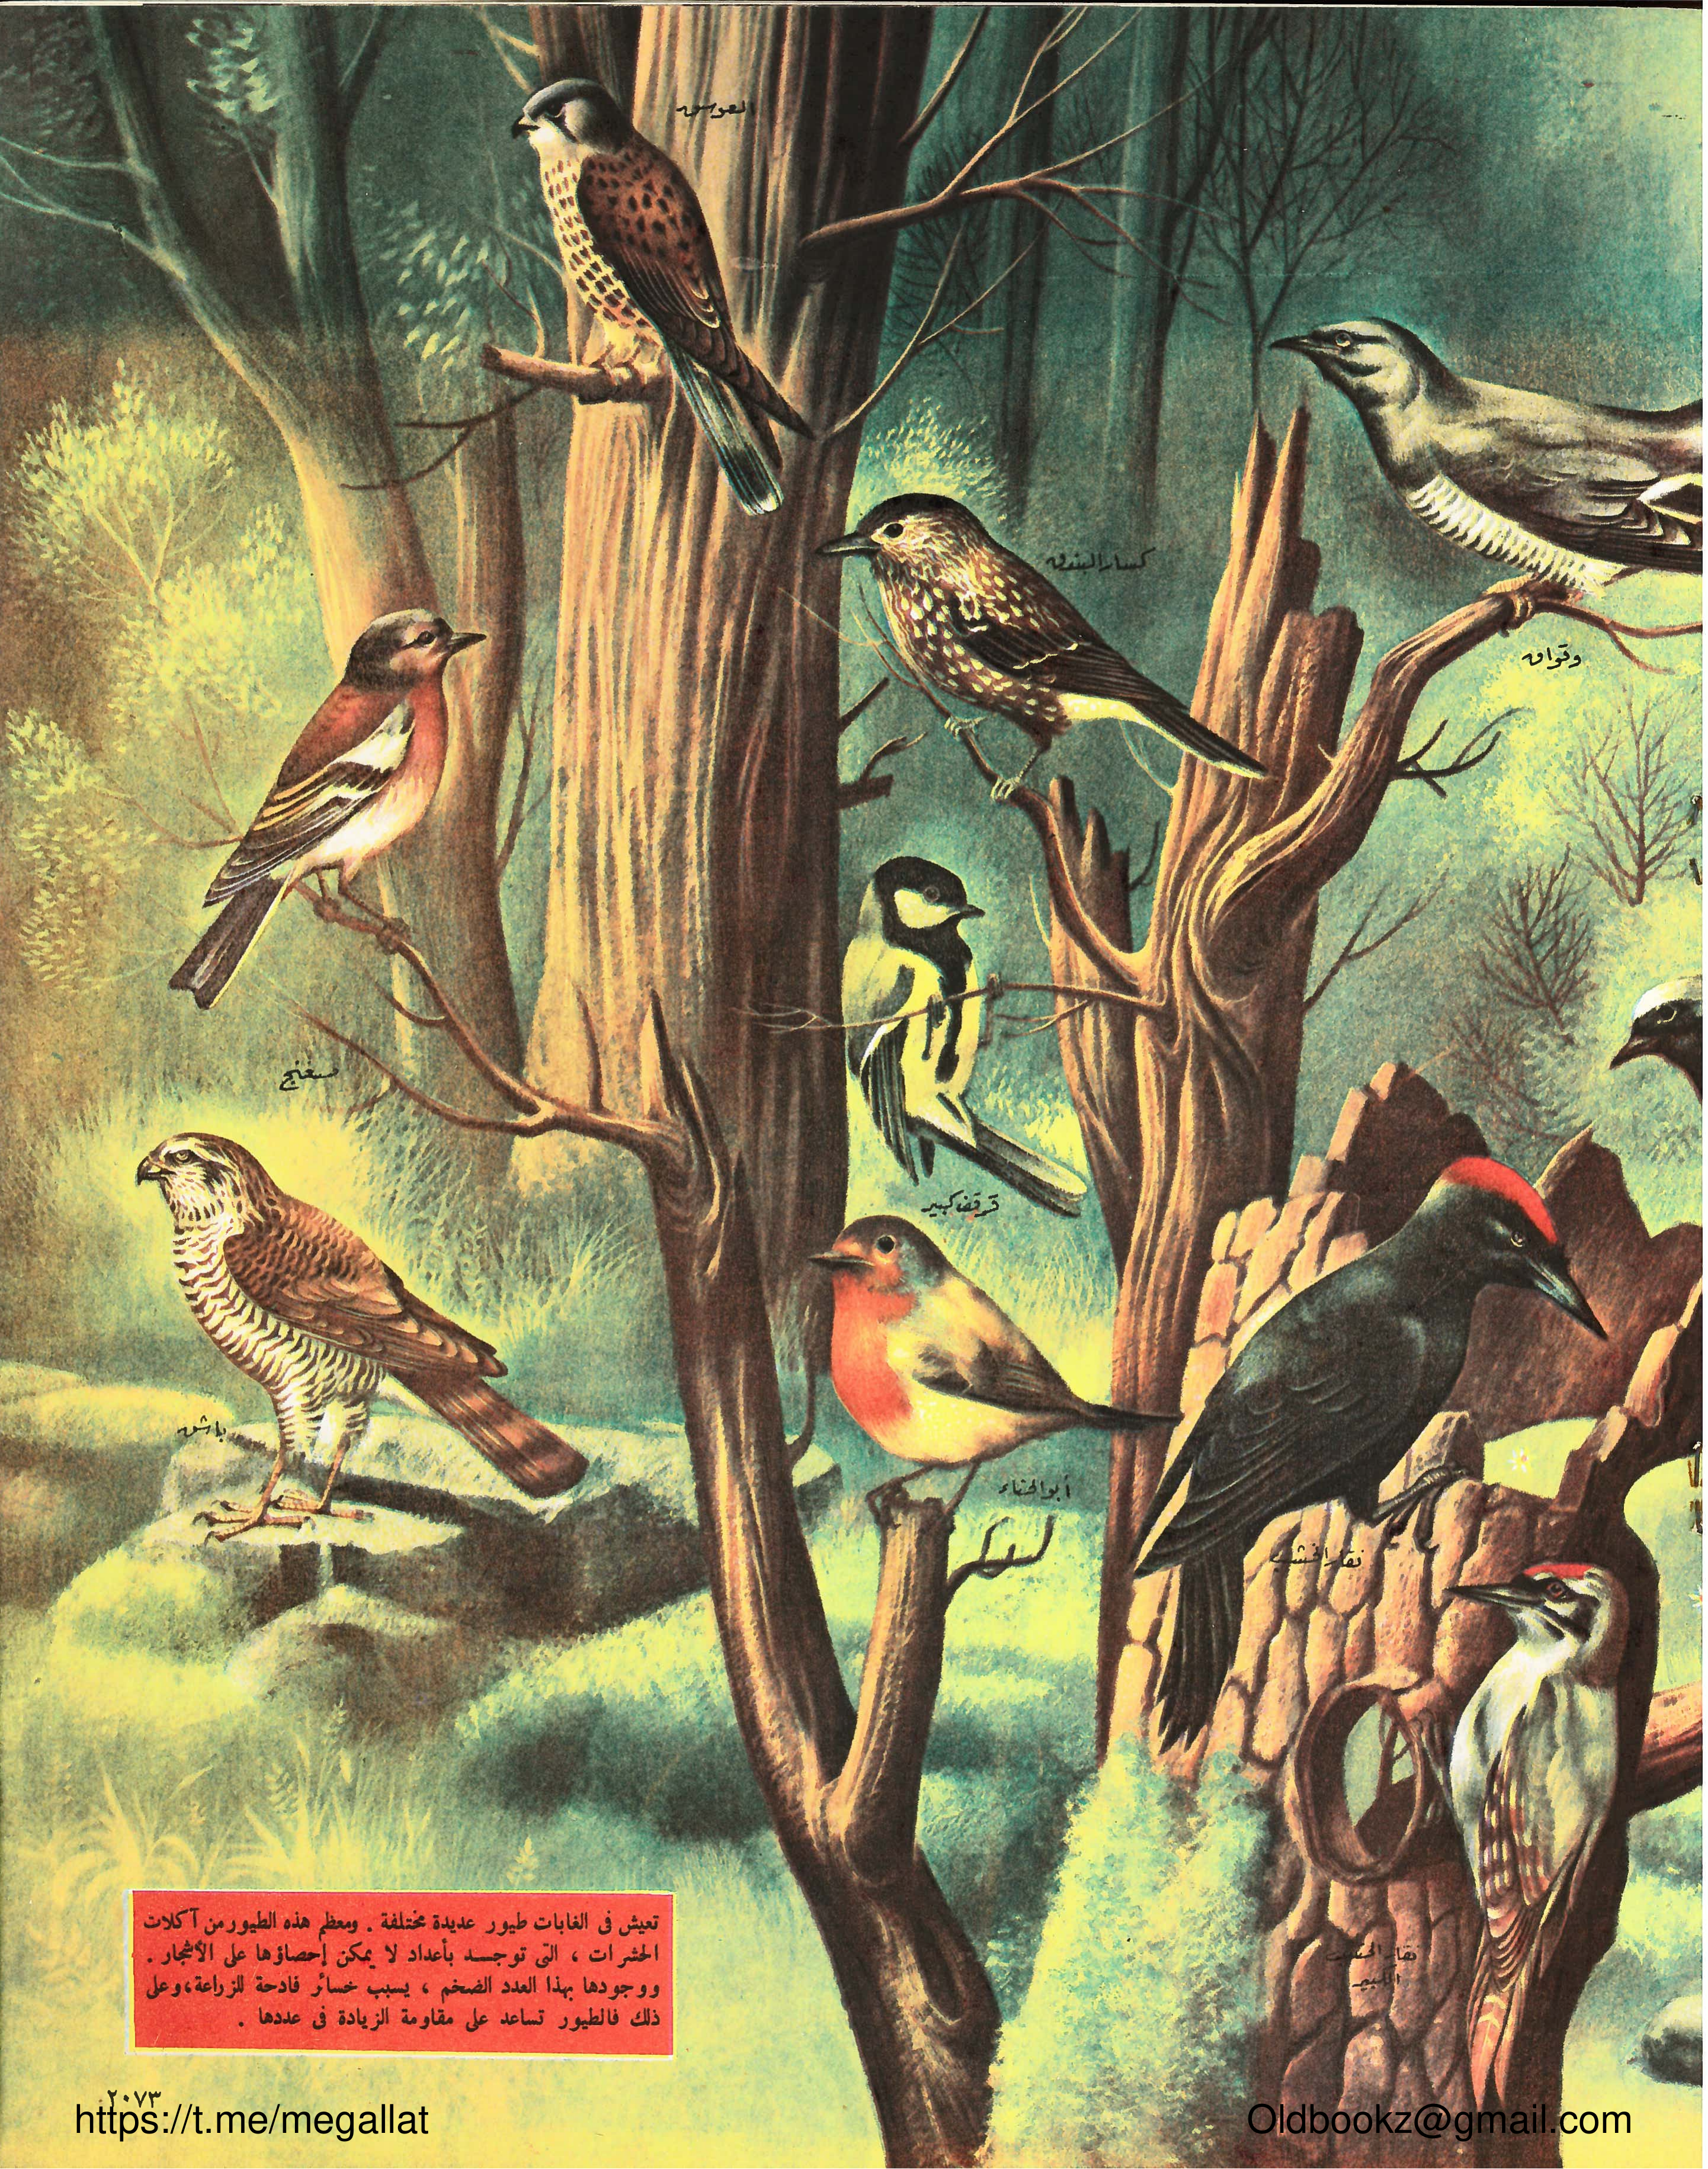 العوسق
كسار البندق
وقواق
صغنج
قرقف كبير
باشق
أبو الحناء
نقار الخشب
نقار الخشب
الكبير
تعيش فى الغابات طيور عديدة مختلفة . ومعظم هذه الطيور من آكلات
الحشرات ، التى توجـد بأعداد لا يمكن إحصاؤها على الأشجار .
ووجودها بهذا العدد الضخم ، يسبب خسائر فادحة للزراعة، وعلى
ذلك فالطيور تساعد على مقاومة الزيادة فى عددها .
٢٠٧٣
https://t.me/megallat
Oldbookz@gmail.com